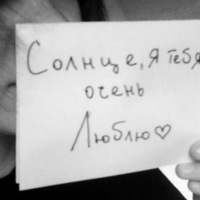 Солнце, я тебя
очень
Люблю♡